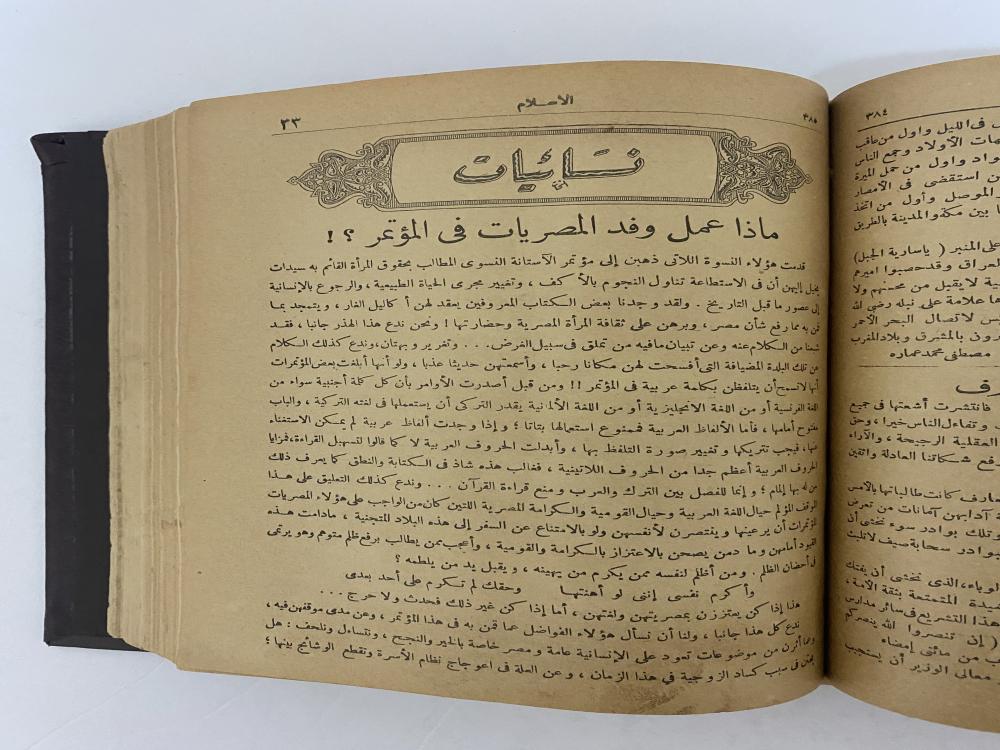 ٣٨٤
فى الليل واول من عاقب
مات الأولاد وجمع الناس
واد واول من حمل الميرة
من استقضى فى الأمصار
الموصل وأول من اتخذ
بين مكة والمدينة بالطريق
على المنبر ( ياسارية الجبل)
لعراق وقد حصبوا اميرهم
ية لا يقبل من محسنهم ولا
ما علامة على نيله رضي الله
س لاتصال البحر الأحمر
رون بالمشرق وبلاد المغرب
مصطفى محمد عماره
فانتشرت أشعتها فى جميع
وتفاءل الناس خيرا ، وحق
العقلية الرجيحة ، والآراء
رفع شكاتنا العادلة واثقين
عارف كانت طالباتها بالأمس
آدابهن آمنات من تعرض
وتلك بوادر سوء نخشى أن
بوادر سحابة صيف لا تلبث
لوباء ، الذى نخشى أن يفتك
يدة المتمتعة بثقة الأمة ،
هذا التشريع فى سائر مدارس
( إن تنصروا الله ينصركم
ب من مائتى إمضاء
معالى الوزير أن يستجيب
٣٨٥ الاسلام ٣٣
نسائيات
ماذا عمل وفد المصريات فى المؤتمر ؟ !
قدمت هؤلاء النسوة اللاتى ذهبن إلى مؤتمر الآستانة النسوى المطالب بحقوق المرأة القائم به سيدات
يخيل إليهن أن فى الاستطاعة تناول النجوم بالأكف ، وتغيير مجرى الحياة الطبيعية ، والرجوع بالإنسانية
إلى عصور ما قبل التاريخ . ولقد وجدنا بعض الكتاب المعروفين يعقد لهن أكاليل الغار ، ويتمجد بما
قمن به مما رفع شأن مصر ، وبرهن على ثقافة المرأة المصرية وحضارتها ! ونحن ندع هذا الهذر جانبا ، فقد
شبعنا من الكلام عنه وعن تبيان مافيه من تملق فى سبيل الغرض . . . وتغرير وبهتان ، وندع كذلك الكلام
عن تلك البلدة المضيافة التى أفسحت لهن مكانا رحبا ، وأسمعتهن حديثا عذبا ، ولو أنها أبلغت بعض المؤتمرات
أنها لا تسمح أن يتلفظن بكلمة عربية فى المؤتمر !! ومن قبل أصدرت الأوامر بأن كل كلمة أجنبية سواء من
اللغة الفرنسية أو من اللغة الانجليزية أو من اللغة الألمانية يقدر التركى أن يستعملها فى لغته التركية ، والباب
مفتوح أمامها ، فأما الألفاظ العربية فممنوع استعمالها بتاتا ؛ وإذا وجدت ألفاظ عربية لم يمكن الاستغناء
عنها ، فيجب تتريكها وتغيير صورة التلفظ بها ، وأبدلت الحروف العربية لا كما قالوا لتسهيل القراءة ، فمزايا
الحروف العربية أعظم جدا من الحروف اللاتينية ، فغالب هذه شاذ فى الكتابة والنطق كما يعرف ذلك
من له بها إلمام ؛ وإنما للفصل بين الترك والعرب ومنع قراءة القرآن . . . وندع كذلك التعليق على هذا
الموقف المؤلم حيال اللغة العربية وحيال القومية والكرامة المصرية اللتين كان من الواجب على هؤلاء المصريات
المؤتمرات أن يرعينها وينتصرن لأنفسهن ولو بالامتناع عن السفر إلى هذه البلاد المتجنية ، مادامت هذه
القيود أمامهن وما دمن يصحن بالاعتزاز بالكرامة والقومية ، وأعجب ممن يطالب برفع ظلم متوهم وهو يرتمى
فى أحضان الظلم . ومن أظلم لنفسه ممن يكرم من يهينه ، ويقبل يد من يلطمه ؟
وأكرم نفسى إننى لو أهنتها وحقك لم تكرم على أحد بعدى
هذا إذا كن يعتززن بمصريتهن ولغتهن ، أما إذا كن غير ذلك فحدث ولا حرج . . .
ندع كل هذا جانبا ، ولنا أن نسأل هؤلاء الفواضل عما قمن به فى هذا المؤتمر ، وعن مدى موقفهن فيه ،
وعما أثرن من موضوعات تعود على الإنسانية عامة ومصر خاصة بالخير والنجح ، ونتساءل ونلحف : هل
بحثن فى سبب كساد الزوجية فى هذا الزمان ، وعن العلة فى اعوجاج نظام الأسرة وتقطع الوشائج بينها ؛